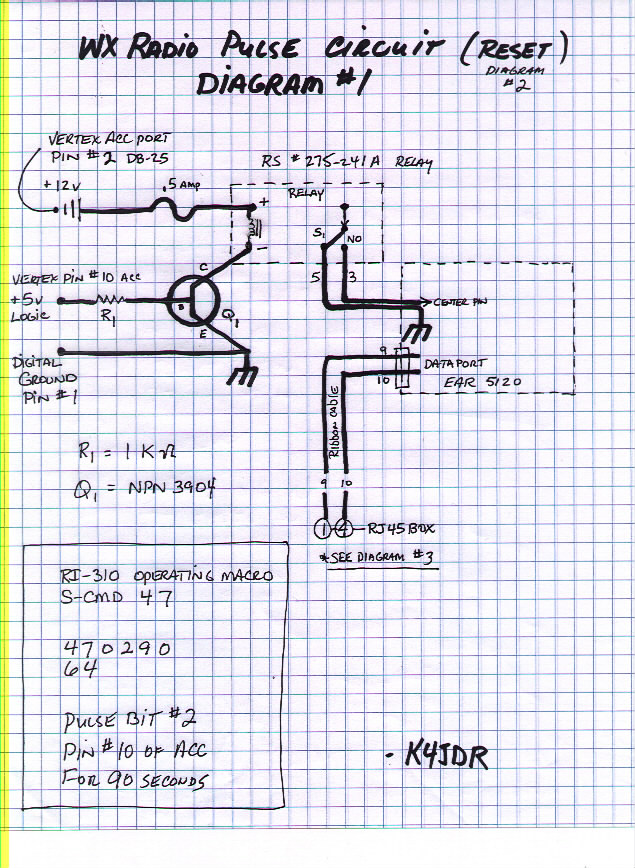 WX RADIO PULSE CIRCUIT (RESET)
DIAGRAM #1
DIAGRAM
#2
VERTEX ACC PORT
PIN #2 DB-25
+12V
.5 AMP
RS # 275-241A RELAY
RELAY
+
-
S1
NO
5
3
CENTER PIN
VERTEX PIN #10 ACC
+5V
LOGIC
R1
C
B
E
Q1
DIGITAL
GROUND
PIN #1
9
10
DATAPORT
EAR 5120
RIBBON CABLE
9 10
1 4 RJ45 BOX
*SEE DIAGRAM #3
R1 = 1 K Ω
Q1 = NPN 3904
RI-310 OPERATING MACRO
S-CMD 47
470290
64
PULSE BIT #2
PIN #10 OF ACC
FOR 90 SECONDS
- K4JDR